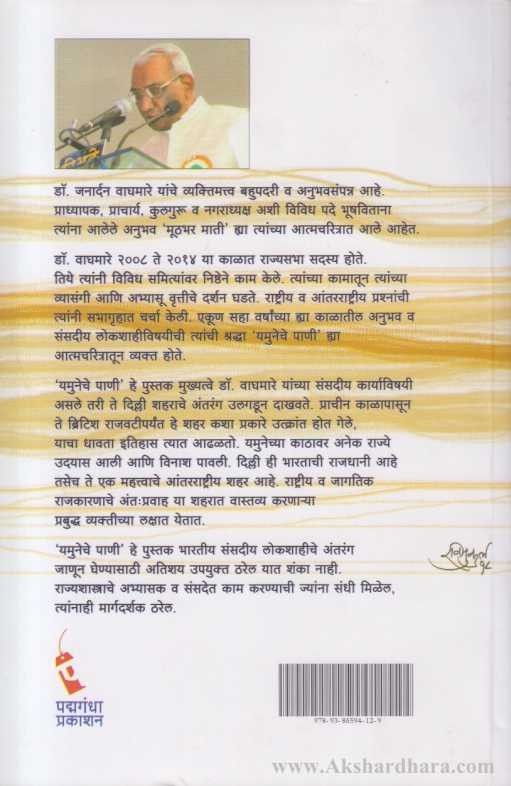 डॉ. जनार्दन वाघमारे यांचे व्यक्तिमत्त्व बहुपदरी व अनुभवसंपन्न आहे.
प्राध्यापक, प्राचार्य, कुलगुरू व नगराध्यक्ष अशी विविध पदे भूषविताना
त्यांना आलेले अनुभव 'मूठभर माती' ह्या त्यांच्या आत्मचरित्रात आले आहेत.
डॉ. वाघमारे २००८ ते २०१४ या काळात राज्यसभा सदस्य होते.
तिथे त्यांनी विविध समित्यांवर निष्ठेने काम केले. त्यांच्या कामातून त्यांच्या
व्यासंगी आणि अभ्यासू वृत्तीचे दर्शन घडते. राष्ट्रीय व आंतरराष्ट्रीय प्रश्नांची
त्यांनी सभागृहात चर्चा केली. एकूण सहा वर्षांच्या ह्या काळातील अनुभव व
संसदीय लोकशाहीविषयीची त्यांची श्रद्धा 'यमुनेचे पाणी' ह्या
आत्मचरित्रातून व्यक्त होते.
'यमुनेचे पाणी' हे पुस्तक मुख्यत्वे डॉ. वाघमारे यांच्या संसदीय कार्याविषयी
असले तरी ते दिल्ली शहराचे अंतरंग उलगडून दाखवते. प्राचीन काळापासून
ते ब्रिटिश राजवटीपर्यंत हे शहर कशा प्रकारे उत्क्रांत होत गेले,
याचा धावता इतिहास त्यात आढळतो. यमुनेच्या काठावर अनेक राज्ये
उदयास आली आणि विनाश पावली. दिल्ली ही भारताची राजधानी आहे
तसेच ते एक महत्त्वाचे आंतरराष्ट्रीय शहर आहे. राष्ट्रीय व जागतिक
राजकारणाचे अंतःप्रवाह या शहरात वास्तव्य करणाऱ्या
प्रबुद्ध व्यक्तीच्या लक्षात येतात.
'यमुनेचे पाणी' हे पुस्तक भारतीय संसदीय लोकशाहीचे अंतरंग
जाणून घेण्यासाठी अतिशय उपयुक्त ठरेल यात शंका नाही.
राज्यशास्त्राचे अभ्यासक व संसदेत काम करण्याची ज्यांना संधी मिळेल,
त्यांनाही मार्गदर्शक ठरेल.
पद्मगंधा
प्रकाशन
978-93-86594-12-9
www.Akshardhara.com